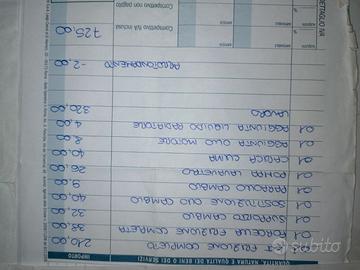 QUANTITÀ, NATURA E QUALITÀ DEI BENI O DEI SERVIZI
IMPORTO
KIT FRIZIONE COMPLETO 210,00
01 FORCELLA FRIZIONE COMPLETA 38,00
01 SUPPORTO CAMBIO 32,00
01 SOSTITUZIONE OLIO CAMBIO 40,00
01 PARAOLIO CAMBIO 9,00
01 POMPA LAVAVETRO 26,00
01 CARICA CLIMA 40,00
01 AGGIUNTA OLIO MOTORE 8,00
01 AGGIUNTA LIQUIDO RADIATORE 4,00
LAVORO 320,00
ARROTONDAMENTO -2,00
DETTAGLIO IVA
Corrispettivo non pagato
Corrispettivo IVA inclusa
725,00
Subito